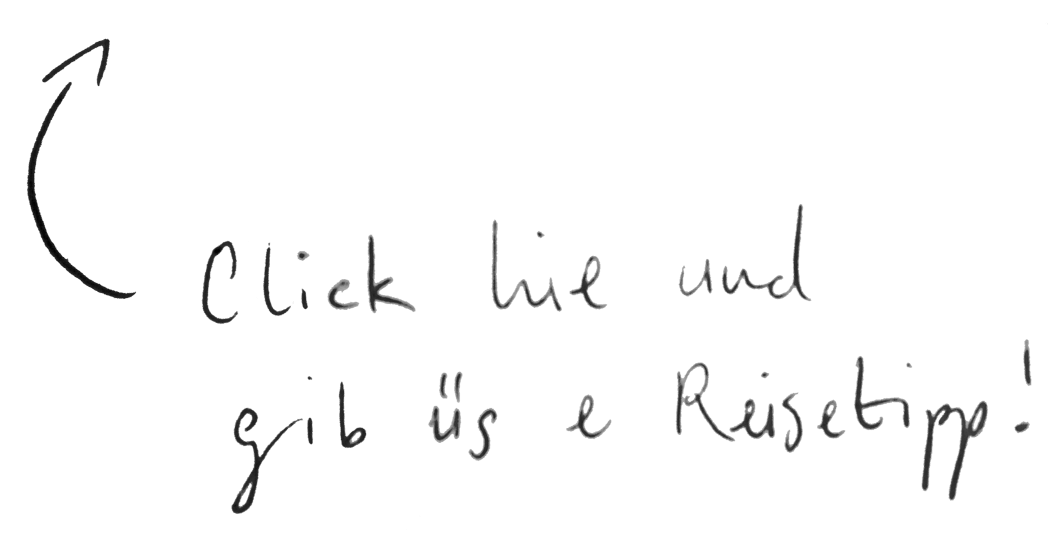 Click hie und
gib üs e Reisetipp!